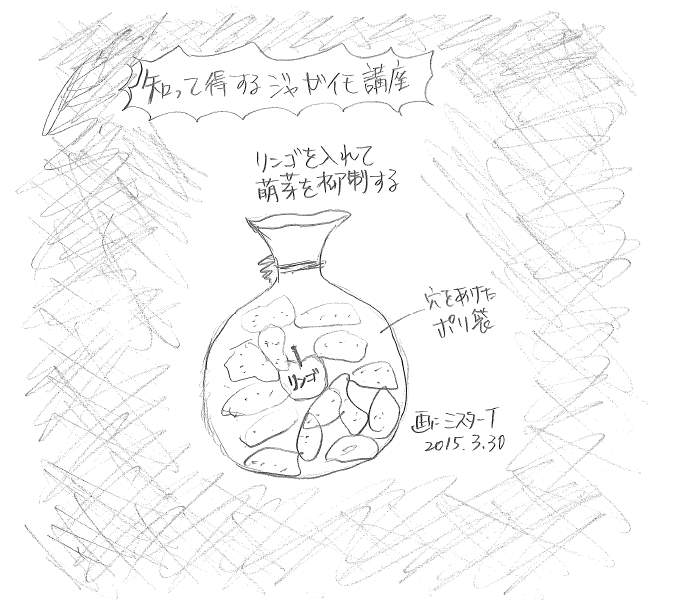 知って得するジャガイモ講座
リンゴを入れて
萌芽を抑制する
穴をあけた
ポリ袋
リンゴ
画:ミスターT
2015.3.30